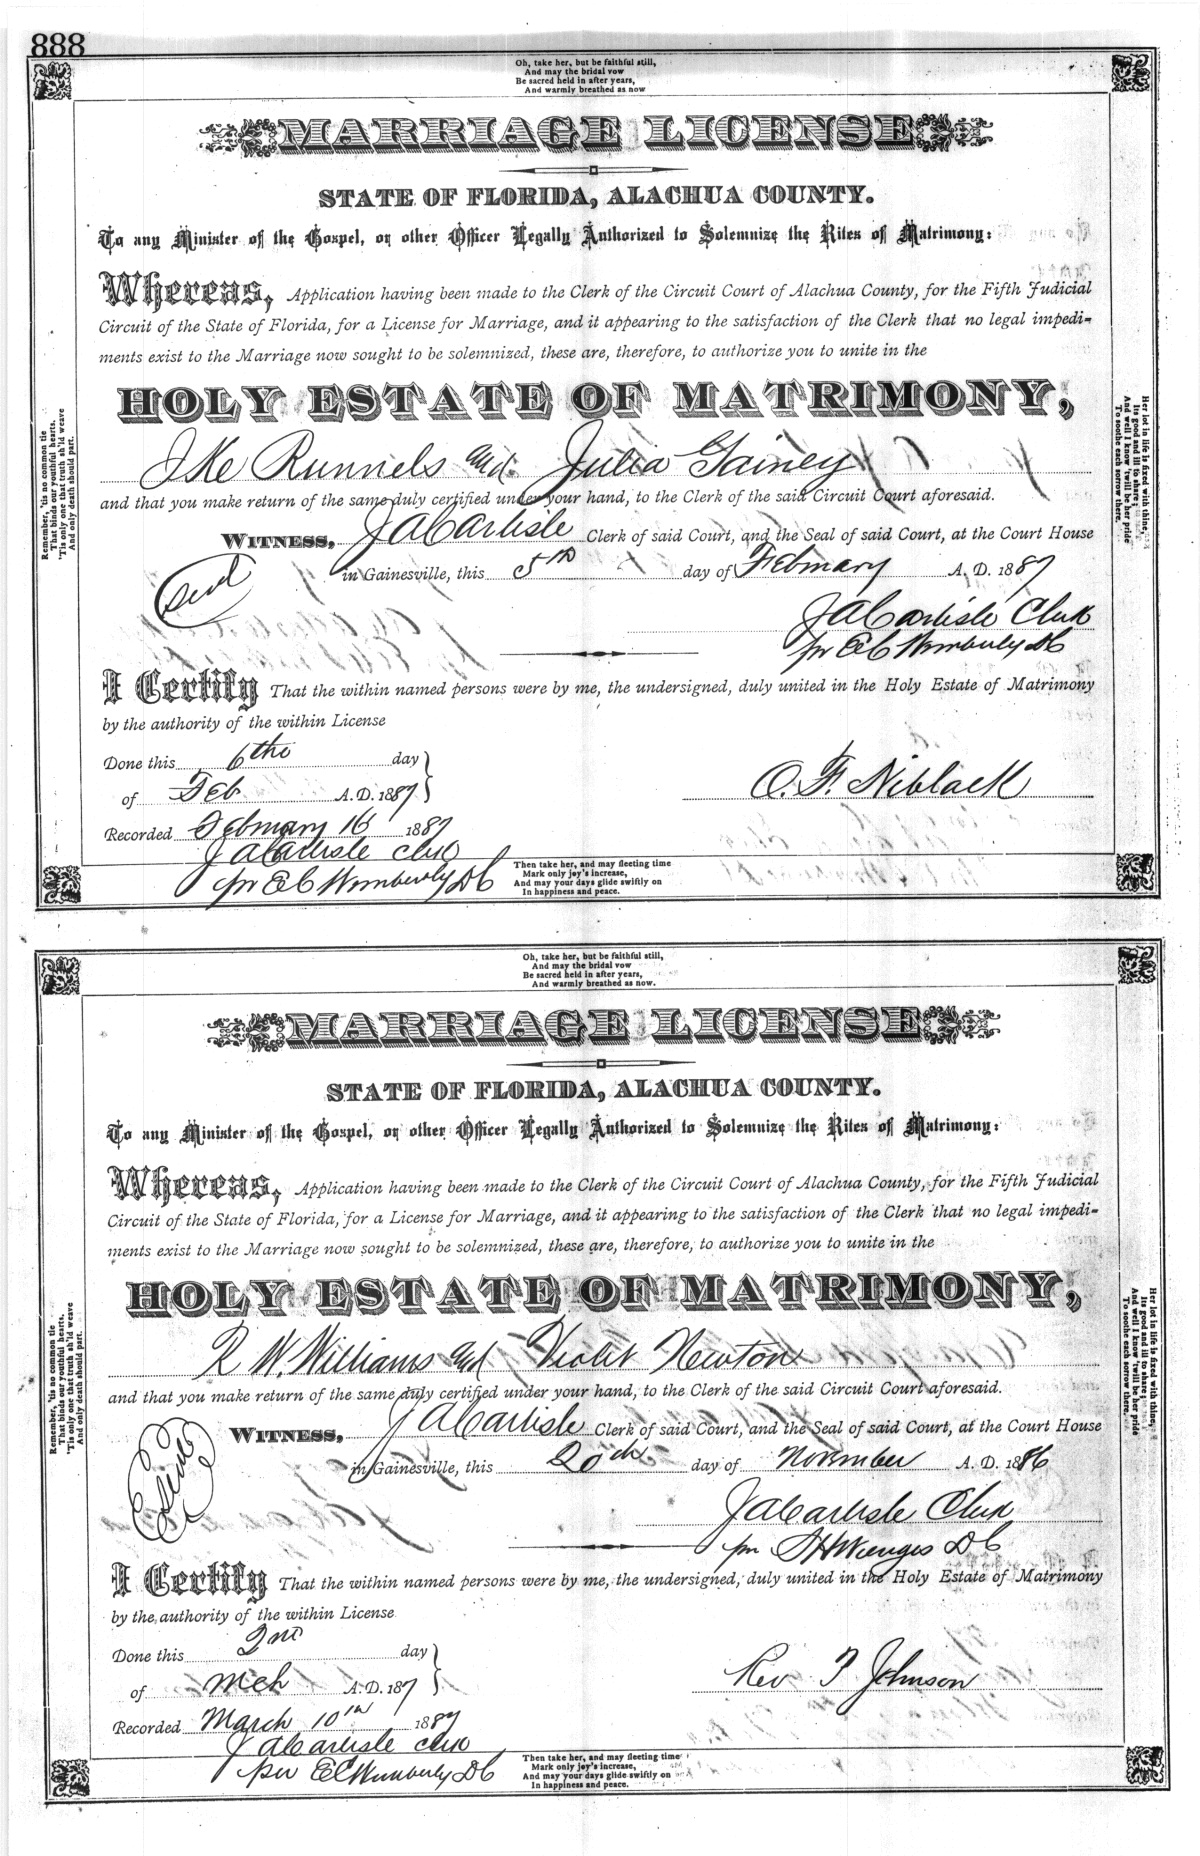 888
Oh, take her, but be faithful still,
And may the bridal vow
Be sacred held in after years,
And warmly breathed as now
MARRIAGE LICENSE
STATE OF FLORIDA, ALACHUA COUNTY.
To any Minister of the Gospel, or other Officer Legally Authorized to Solemnize the Rites of Matrimony:
Whereas, Application having been made to the Clerk of the Circuit Court of Alachua County, for the Fifth Judicial
Circuit of the State of Florida, for a License for Marriage, and it appearing to the satisfaction of the Clerk that no legal impedi-
ments exist to the Marriage now sought to be solemnized, these are, therefore, to authorize you to unite in the
HOLY ESTATE OF MATRIMONY,
Ike Runnels and Julia Gainey
and that you make return of the same duly certified under your hand, to the Clerk of the said Circuit Court aforesaid.
WITNESS, J A Carlisle Clerk of said Court, and the Seal of said Court, at the Court House
in Gainesville, this 5th day of February A. D. 1887
Seal
J A Carlisle Clerk
pr E C Wimberly DC
I Certify That the within named persons were by me, the undersigned, duly united in the Holy Estate of Matrimony
by the authority of the within License
Done this 6th day
of Feb A. D. 1887
O. F. Niblack
Recorded February 16 1887
J A Carlisle Clerk
pr E C Wimberly DC
Then take her, and may fleeting time
Mark only joy's increase,
And may your days glide swiftly on
In happiness and peace.
Remember, 'tis no common tie
That binds our youthful hearts.
'Tis only one that truth sh'ld weave
And only death should part.
Her lot in life is fixed with thine,
Its good and ill to share;
And well I know 'twill be her pride
To soothe each sorrow there.
Oh, take her, but be faithful still,
And may the bridal vow
Be sacred held in after years,
And warmly breathed as now.
MARRIAGE LICENSE
STATE OF FLORIDA, ALACHUA COUNTY.
To any Minister of the Gospel, or other Officer Legally Authorized to Solemnize the Rites of Matrimony:
Whereas, Application having been made to the Clerk of the Circuit Court of Alachua County, for the Fifth Judicial
Circuit of the State of Florida, for a License for Marriage, and it appearing to the satisfaction of the Clerk that no legal impedi-
ments exist to the Marriage now sought to be solemnized, these are, therefore, to authorize you to unite in the
HOLY ESTATE OF MATRIMONY,
R W. Williams and Violet Newton
and that you make return of the same duly certified under your hand, to the Clerk of the said Circuit Court aforesaid.
WITNESS, J A Carlisle Clerk of said Court, and the Seal of said Court, at the Court House
in Gainesville, this 20th day of November A. D. 1886
J A Carlisle Clerk
pr DC
I Certify That the within named persons were by me, the undersigned, duly united in the Holy Estate of Matrimony
by the authority of the within License
Done this 2nd day
of Mch A. D. 187
Rev T Johnson
Recorded March 10th 1887
J A Carlisle Clerk
per E C Wimberly DC
Then take her, and may fleeting time
Mark only joy's increase,
And may your days glide swiftly on
In happiness and peace.
Remember, 'tis no common tie
That binds our youthful hearts.
'Tis only one that truth sh'ld weave
And only death should part.
Her lot in life is fixed with thine,
Its good and ill to share;
And well I know 'twill be her pride
To soothe each sorrow there.